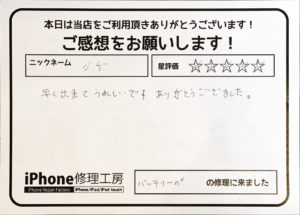 本日は当店をご利用頂きありがとうございます！
ご感想をお願いします！
ニックネーム
星評価 ☆☆☆☆☆
早く出来て うれしいです ありがとうございました。
iPhone修理工房
iPhone Repair Factory iPhone/iPad/iPod touch
バッテリーの の修理に来ました